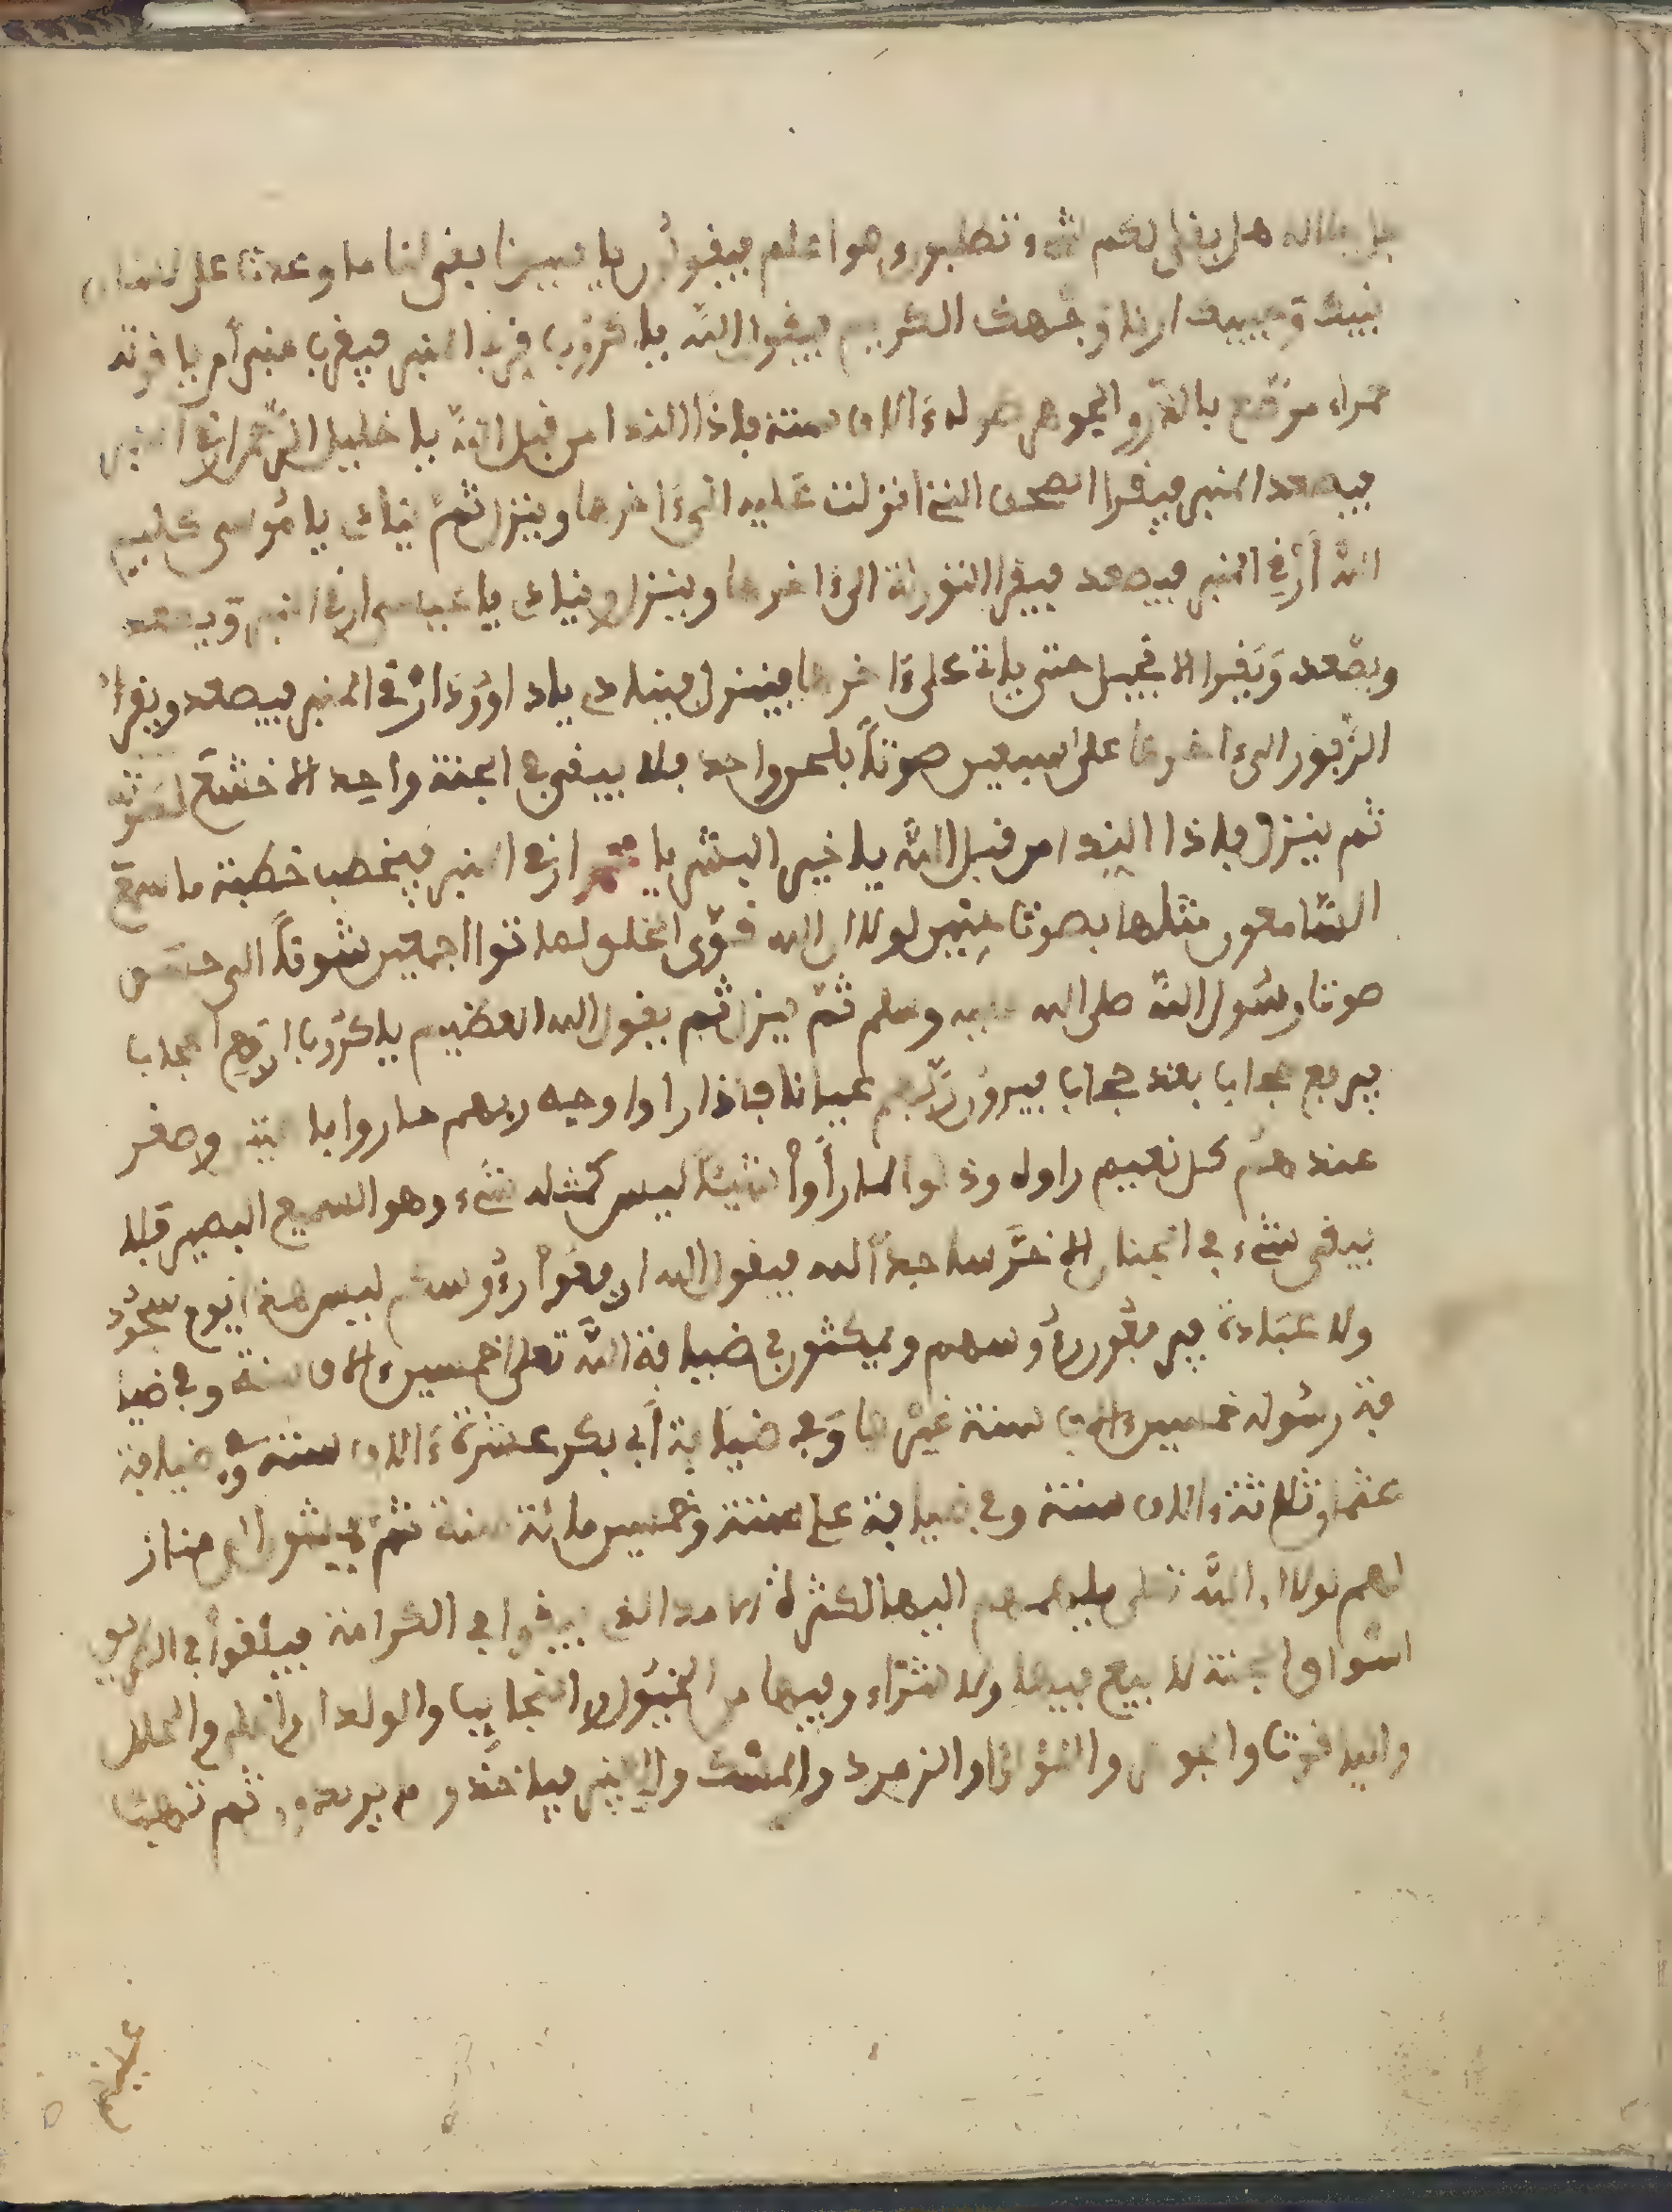 جل جلاله هل بقى لكم شيء تطلبوه وهو اعلم فيقولون يا سيدنا بقى لنا ما وعدتنا على لسان
نبيك وحبيبك ارنا وجهك الكريم فيقول الله يا كروب قرب المنبر فيقرب منبر أمن ياقوتة
حمراء مرصع بالدر والجوهر طوله ءالاف سنة فاذا النداء من قبل الله يا خليل الرحمان ارق المنبر
فيصعد المنبر فيقرا الصحف التي انزلت عليه الى ءاخرها وينزل ثم يناد يا موسى كليم
الله أرق المنبر فيصعد فيقرا التوراة الى ءاخرها وينزل ويناد يا عيسى ارق المنبر ويصعد
ويصعد ويقرا الانجيل حتى ياتي على ءاخرها فينزل فينادى يا داوود ارق المنبر فيصعد ويقرا
الزبور الى ءاخرها على سبعين صوتاً بلحن واحد فلا يبقى في الجنة واحد الا خشع لصوته
ثم ينزل فاذا النداء من قبل الله يا خير البشر يا محمد ارق المنبر فيخطب خطبة ما سمع
السامعون مثلها بصوت لولا ان الله قوى الخلق لماتوا اجمعين شوقاً الى حسن
صوت رسول الله صلى الله عليه وسلم ثم ينزل ثم يقول الله العظيم يا كروب ارفع الحجاب
فيرفع حجاب بعد حجاب فيرون ربهم عيانا فاذا راوا وجه ربهم حاروا وصغر
عندهم كل نعيم راوه وذ لوا لما رأوا شيئا ليس كمثله شيء وهو السميع البصير فلا
يبقى شيء في الجنان الا خر ساجداً لله فيقول الله ارفعوا رءوسكم ليس هذا اليوم سجود
ولا عبادة فيرفعون رءوسهم ويمكثون في ضيافة الله تعلى خمسين ءالاف سنة وفي ضيا
فة رسوله خمسين الف سنة غيرها وفي ضيافة أبي بكر عشرة ءالاف سنة وفي ضيافة
عثمان ثلاثة ءالاف سنة وفي ضيافة علي سنة وخمسين مائة سنة ثم يمشون الى مناز
لهم لولا ان الله تعلى اليها لكثرة في الكرامة فيبلغوا في الى
اسواق الجنة لا بيع فيها ولا شراء وفيها من الخيول والنجايب والولدان والحلل
والياقوت والجوهر واللؤلؤ والزمرد والمسك والعنبر فياخذون ما يريدون ثم تهب
عليهم